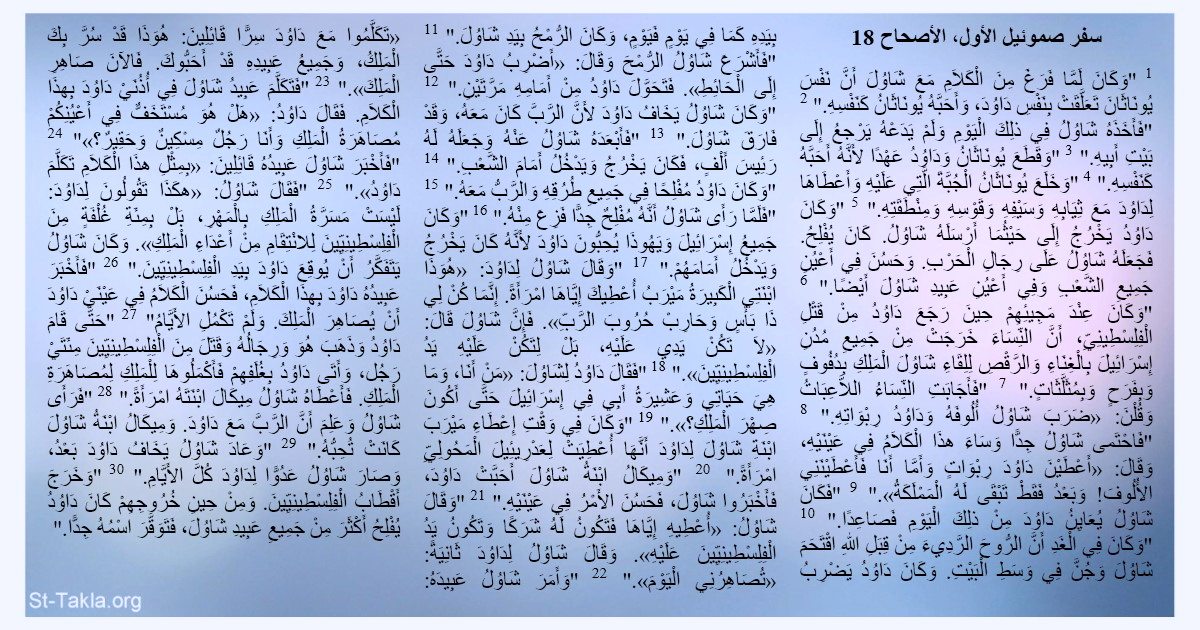 سفر صموئيل الأول، الأصحاح 18
1 "وَكَانَ لَمَّا فَرَغَ مِنَ الْكَلاَمِ مَعَ شَاوُلَ أَنَّ نَفْسَ
يُونَاثَانَ تَعَلَّقَتْ بِنَفْسِ دَاوُدَ، وَأَحَبَّهُ يُونَاثَانُ كَنَفْسِهِ." 2
"فَأَخَذَهُ شَاوُلُ فِي ذلِكَ الْيَوْمِ وَلَمْ يَدَعْهُ يَرْجعُ إِلَى
بَيْتِ أَبِيهِ." 3 "وَقَطَعَ يُونَاثَانُ وَدَاوُدُ عَهْدًا لأَنَّهُ أَحَبَّهُ
كَنَفْسِهِ." 4 "وَخَلَعَ يُونَاثَانُ الْجُبَّةَ الَّتِي عَلَيْهِ وَأَعْطَاهَا
لِدَاوُدَ مَعَ ثِيَابِهِ وَسَيْفِهِ وَقَوْسِهِ وَمِنْطَقَتِهِ." 5 "وَكَانَ
دَاوُدُ يَخْرُجُ إِلَى حَيْثُمَا أَرْسَلَهُ شَاوُلُ. كَانَ يُفْلِحُ.
فَجَعَلَهُ شَاوُلُ عَلَى رِجَالِ الْحَرْبِ. وَحَسُنَ فِي أَعْيُنِ
جَمِيعِ الشَّعْبِ وَفِي أَعْيُنِ عَبِيدِ شَاوُلَ أَيْضًا." 6
"وَكَانَ عِنْدَ مَجِيئِهِمْ حِينَ رَجَعَ دَاوُدُ مِنْ قَتْلِ
الْفِلِسْطِينِيِّ، أَنَّ النِّسَاءَ خَرَجَتْ مِنْ جَمِيعِ مُدُنِ
إِسْرَائِيلَ بِالْغِنَاءِ وَالرَّقْصِ لِلِقَاءِ شَاوُلَ الْمَلِكِ بِدُفُوفٍ
وَبِفَرَحٍ وَبِمُثَلَّثَاتٍ." 7 "فَأَجَابَتِ النِّسَاءُ اللاَّعِبَاتُ
وَقُلْنَ: «ضَرَبَ شَاوُلُ أُلُوفَهُ وَدَاوُدُ رِبْوَاتِهِ." 8
"فَاحْتَمَى شَاوُلُ جِدًّا وَسَاءَ هذَا الْكَلاَمُ فِي عَيْنَيْهِ،
وَقَالَ: «أَعْطَيْنَ دَاوُدَ رِبْوَاتٍ وَأَمَّا أَنَا فَأَعْطَيْنَنِي
الأُلُوفَ! وَبَعْدُ فَقَطْ تَبْقَى لَهُ الْمَمْلَكَةُ»." 9 "فَكَانَ
شَاوُلُ يُعَايِنُ دَاوُدَ مِنْ ذلِكَ الْيَوْمِ فَصَاعِدًا." 10
"وَكَانَ فِي الْغَدِ أَنَّ الرُّوحَ الرَّدِيءَ مِنْ قِبَلِ اللهِ اقْتَحَمَ
شَاوُلَ وَجُنَّ فِي وَسَطِ الْبَيْتِ. وَكَانَ دَاوُدُ يَضْرِبُ
بِيَدِهِ كَمَا فِي يَوْمٍ فَيَوْمٍ، وَكَانَ الرُّمْحُ بِيَدِ شَاوُلَ." 11
"فَأَشْرَعَ شَاوُلُ الرُّمْحَ وَقَالَ: «أَضْرِبُ دَاوُدَ حَتَّى
إِلَى الْحَائِطِ». فَتَحَوَّلَ دَاوُدُ مِنْ أَمَامِهِ مَرَّتَيْنِ." 12
"وَكَانَ شَاوُلُ يَخَافُ دَاوُدَ لأَنَّ الرَّبَّ كَانَ مَعَهُ، وَقَدْ
فَارَقَ شَاوُلَ." 13 "فَأَبْعَدَهُ شَاوُلُ عَنْهُ وَجَعَلَهُ لَهُ
رَئِيسَ أَلْفٍ، فَكَانَ يَخْرُجُ وَيَدْخُلُ أَمَامَ الشَّعْبِ." 14
"وَكَانَ دَاوُدُ مُفْلِحًا فِي جَمِيعِ طُرُقِهِ وَالرَّبُّ مَعَهُ." 15
"فَلَمَّا رَأَى شَاوُلُ أَنَّهُ مُفْلِحٌ جِدًّا فَزِعَ مِنْهُ." 16 "وَكَانَ
جَمِيعُ إِسْرَائِيلَ وَيَهُوذَا يُحِبُّونَ دَاوُدَ لأَنَّهُ كَانَ يَخْرُجُ
وَيَدْخُلُ أَمَامَهُمْ." 17 "وَقَالَ شَاوُلُ لِدَاوُدَ: «هُوَذَا
ابْنَتِي الْكَبِيرَةُ مَيْرَبُ أُعْطِيكَ إِيَّاهَا امْرَأَةً. إِنَّمَا كُنْ لِي
ذَا بَأْسٍ وَحَارِبْ حُرُوبَ الرَّبِّ». فَإِنَّ شَاوُلَ قَالَ:
«لاَ تَكُنْ يَدِي عَلَيْهِ، بَلْ لِتَكُنْ عَلَيْهِ يَدُ
الْفِلِسْطِينِيِّينَ»." 18 "فَقَالَ دَاوُدُ لِشَاوُلَ: «مَنْ أَنَا، وَمَا
هِيَ حَيَاتِي وَعَشِيرَةُ أَبِي فِي إِسْرَائِيلَ حَتَّى أَكُونَ
صِهْرَ الْمَلِكِ؟»." 19 "وَكَانَ فِي وَقْتِ إِعْطَاءِ مَيْرَبَ
ابْنَةِ شَاوُلَ لِدَاوُدَ أَنَّهَا أُعْطِيَتْ لِعَدْرِيئِيلَ الْمَحُولِيِّ
امْرَأَةً." 20 "وَمِيكَالُ ابْنَةُ شَاوُلَ أَحَبَّتْ دَاوُدَ،
فَأَخْبَرُوا شَاوُلَ، فَحَسُنَ الأَمْرُ فِي عَيْنَيْهِ." 21 "وَقَالَ
شَاوُلُ: «أُعْطِيهِ إِيَّاهَا فَتَكُونُ لَهُ شَرَكًا وَتَكُونُ يَدُ
الْفِلِسْطِينِيِّينَ عَلَيْهِ». وَقَالَ شَاوُلُ لِدَاوُدَ ثَانِيَةً:
«تُصَاهِرُنِي الْيَوْمَ»." 22 "وَأَمَرَ شَاوُلُ عَبِيدَهُ:
«تَكَلَّمُوا مَعَ دَاوُدَ سِرًّا قَائِلِينَ: هُوَذَا قَدْ سُرَّ بِكَ
الْمَلِكُ، وَجَمِيعُ عَبِيدِهِ قَدْ أَحَبُّوكَ. فَالآنَ صَاهِرِ
الْمَلِكَ»." 23 "فَتَكَلَّمَ عَبِيدُ شَاوُلَ فِي أُذُنَيْ دَاوُدَ بِهذَا
الْكَلاَمِ. فَقَالَ دَاوُدُ: «هَلْ هُوَ مُسْتَخَفٌّ فِي أَعْيُنِكُمْ
مُصَاهَرَةُ الْمَلِكِ وَأَنَا رَجُلٌ مِسْكِينٌ وَحَقِيرٌ؟»" 24
"فَأَخْبَرَ شَاوُلَ عَبِيدُهُ قَائِلِينَ: «بِمِثْلِ هذَا الْكَلاَمِ تَكَلَّمَ
دَاوُدُ»." 25 "فَقَالَ شَاوُلُ: «هكَذَا تَقُولُونَ لِدَاوُدَ:
لَيْسَتْ مَسَرَّةُ الْمَلِكِ بِالْمَهْرِ، بَلْ بِمِئَةِ غُلْفَةٍ مِنَ
الْفِلِسْطِينِيِّينَ لِلانْتِقَامِ مِنْ أَعْدَاءِ الْمَلِكِ». وَكَانَ شَاوُلُ
يَتَفَكَّرُ أَنْ يُوقِعَ دَاوُدَ بِيَدِ الْفِلِسْطِينِيِّينَ." 26 "فَأَخْبَرَ
عَبِيدُهُ دَاوُدَ بِهذَا الْكَلاَمِ، فَحَسُنَ الْكَلاَمُ فِي عَيْنَيْ دَاوُدَ
أَنْ يُصَاهِرَ الْمَلِكَ. وَلَمْ تَكْمُلِ الأَيَّامُ" 27 "حَتَّى قَامَ
دَاوُدُ وَذَهَبَ هُوَ وَرِجَالُهُ وَقَتَلَ مِنَ الْفِلِسْطِينِيِّينَ مِئَتَيْ
رَجُل، وَأَتَى دَاوُدُ بِغُلَفِهِمْ فَأَكْمَلُوهَا لِلْمَلِكِ لِمُصَاهَرَةِ
الْمَلِكِ. فَأَعْطَاهُ شَاوُلُ مِيكَالَ ابْنَتَهُ امْرَأَةً." 28 "فَرَأَى
شَاوُلُ وَعَلِمَ أَنَّ الرَّبَّ مَعَ دَاوُدَ. وَمِيكَالُ ابْنَةُ شَاوُلَ
كَانَتْ تُحِبُّهُ." 29 "وَعَادَ شَاوُلُ يَخَافُ دَاوُدَ بَعْدُ،
وَصَارَ شَاوُلُ عَدُوًّا لِدَاوُدَ كُلَّ الأَيَّامِ." 30 "وَخَرَجَ
أَقْطَابُ الْفِلِسْطِينِيِّينَ. وَمِنْ حِينِ خُرُوجِهِمْ كَانَ دَاوُدُ
يُفْلِحُ أَكْثَرَ مِنْ جَمِيعِ عَبِيدِ شَاوُلَ، فَتَوَقَّرَ اسْمُهُ جِدًّا."
St-Takla.org